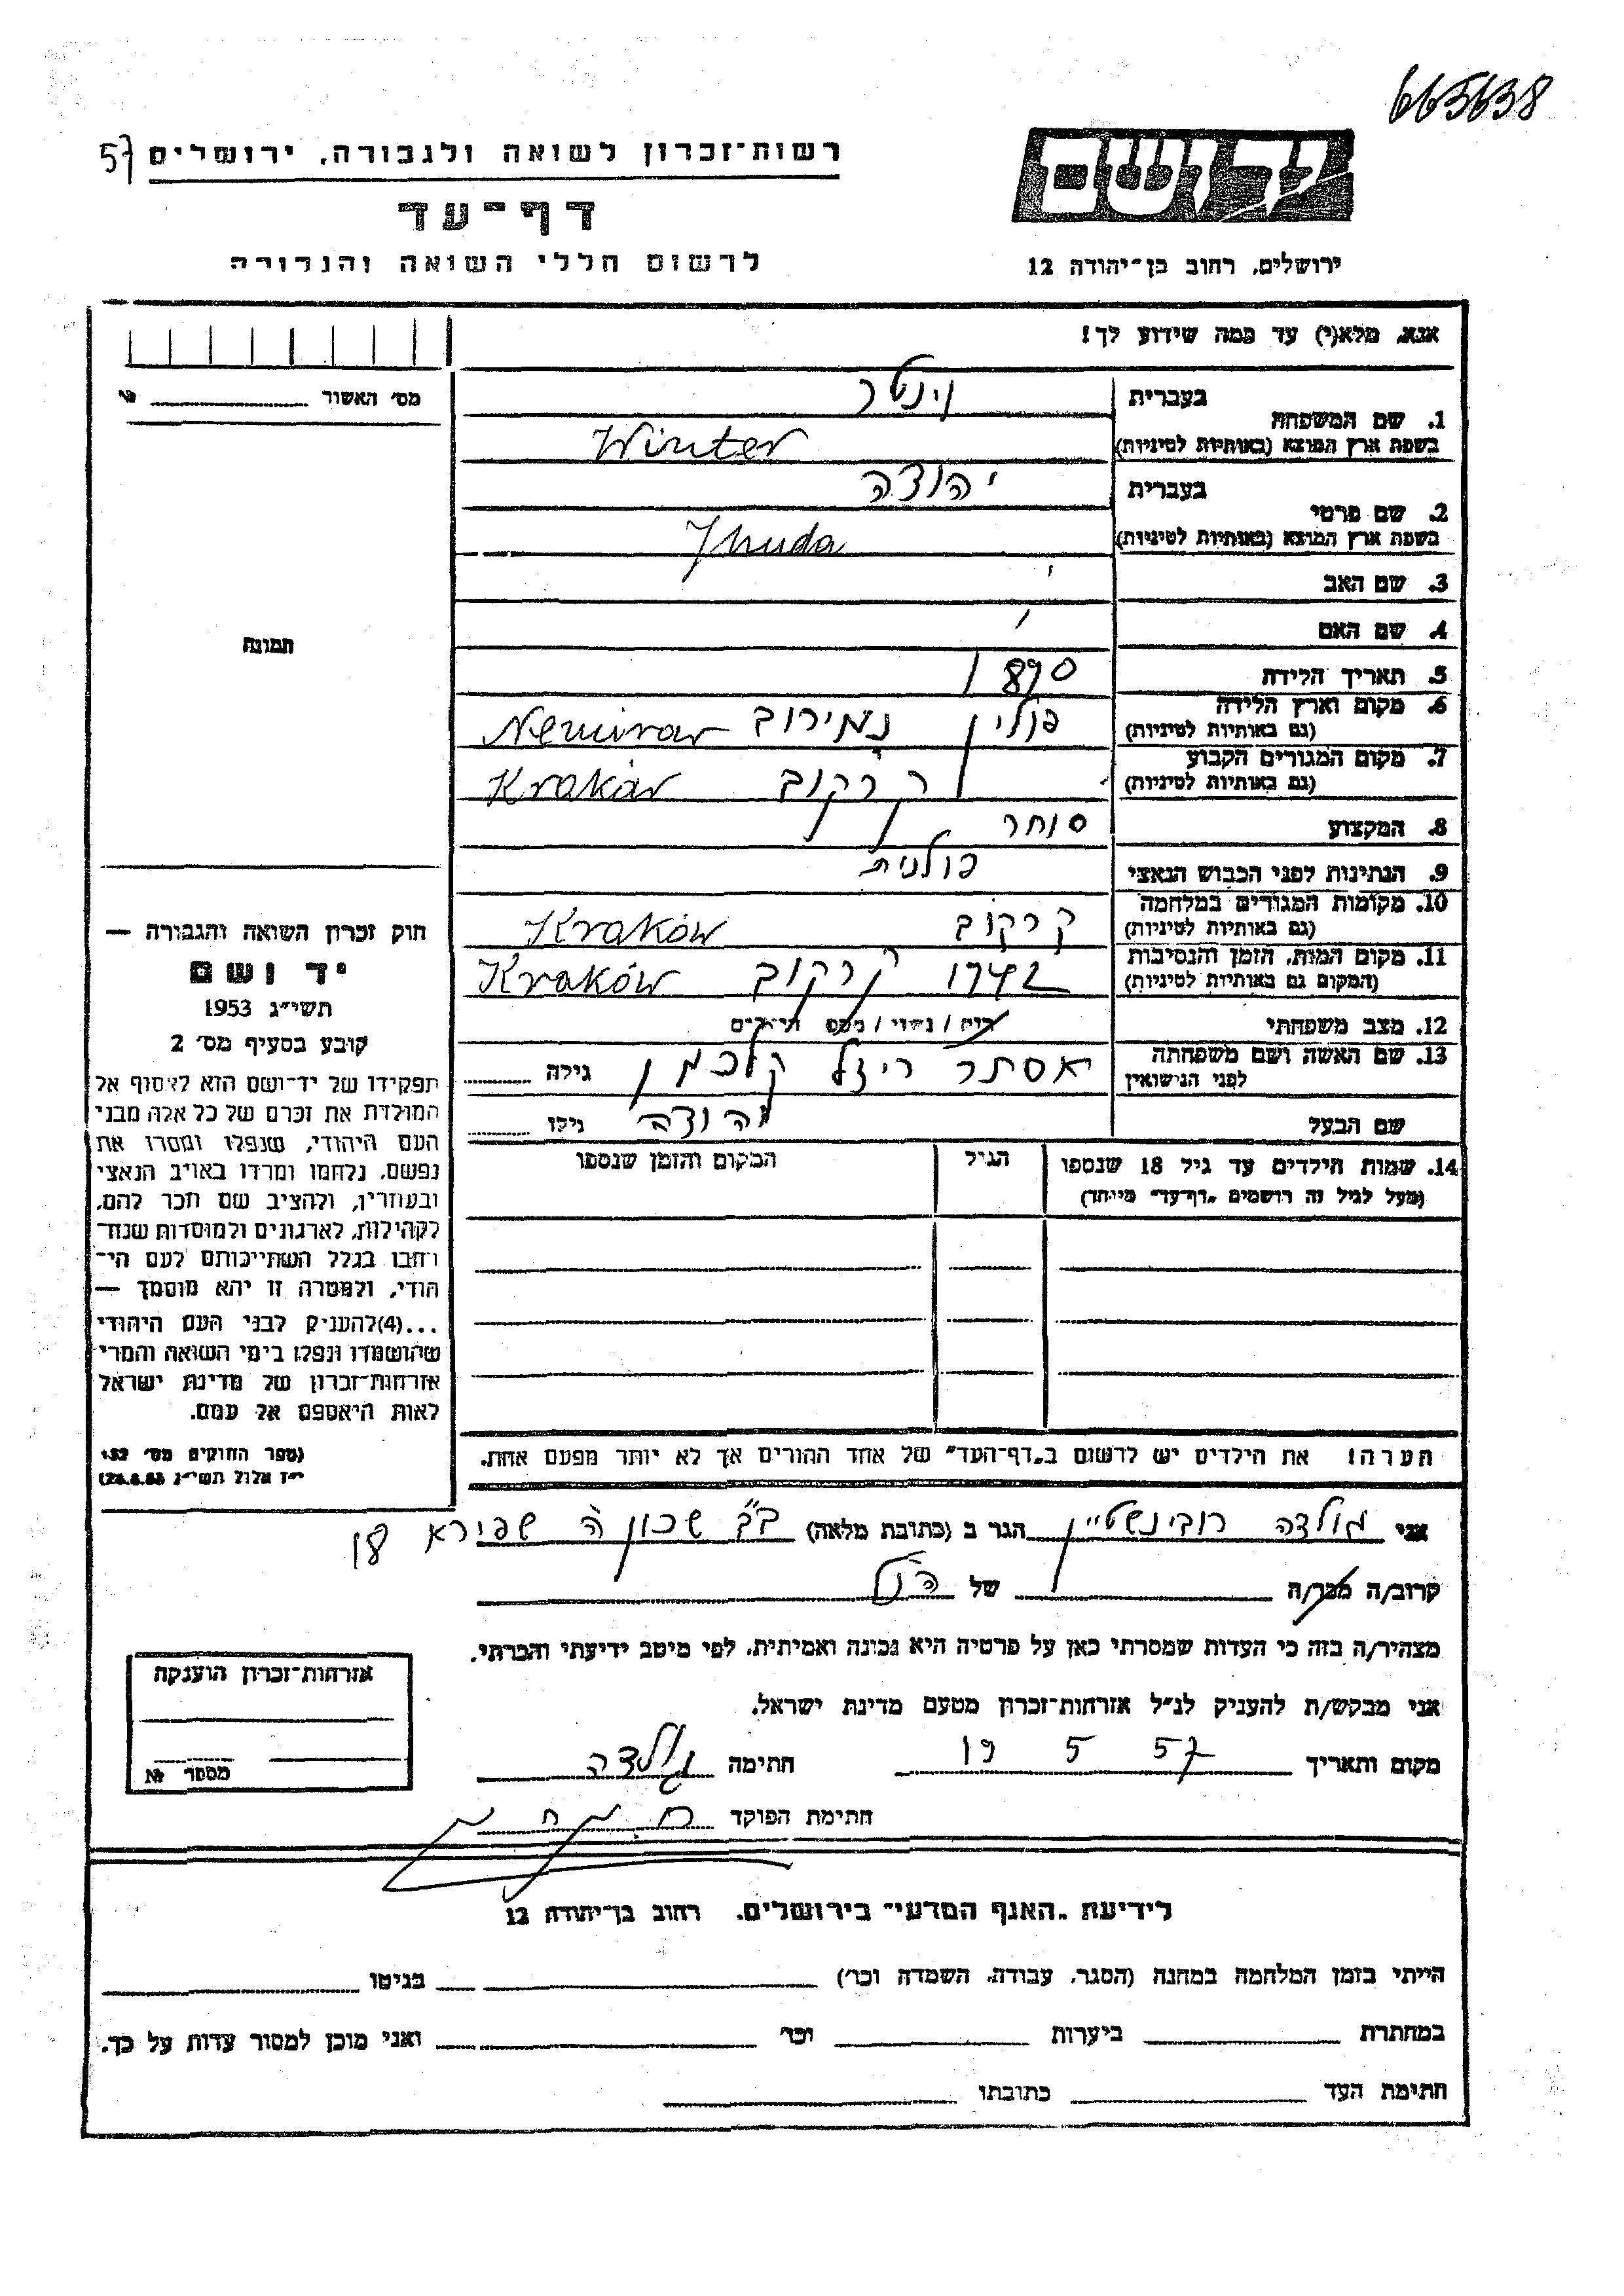 665638
57 רשות־זכרון לשואה ולגבורה, ירושלים
יד ושם
דף־עד
ירושלים, רחוב בן־יהודה 12
לרשום חללי השואה והגבורה
אנא, מלא(י) עד כמה שידוע לך!
מס׳ האשור
1. שם המשפחה
בעברית
וינטר
בשפת ארץ המוצא (באותיות לטיניות)
Winter
2. שם פרטי
בעברית
יהודה
בשפת ארץ המוצא (באותיות לטיניות)
Jhuda
3. שם האב
4. שם האם
תמונה
5. תאריך הלידה
1890
6. מקום וארץ הלידה
(גם באותיות לטיניות)
פולין נמירוב Nemirov
7. מקום המגורים הקבוע
(גם באותיות לטיניות)
קרקוב Kraków
8. המקצוע
סוחר
9. הנתינות לפני הכבוש הנאצי
פולנית
10. מקומות המגורים במלחמה
(גם באותיות לטיניות)
קרקוב Kraków
11. מקום המות, הזמן והנסיבות
(המקום גם באותיות לטיניות)
1942 קרקוב Kraków
12. מצב משפחתי
רוק / נשוי / מספר הילדים
13. שם האשה ושם משפחתה
לפני הנישואין
אסתר רייזל קלכמן גילה
שם הבעל
יהודה גילו
14. שמות הילדים עד גיל 18 שנספו
(מעל לגיל זה רושמים „דף־עד״ מיוחד)
הגיל
המקום והזמן שנספו
חוק זכרון השואה והגבורה —
יד ושם
תשי״ג 1953
קובע בסעיף מס׳ 2
תפקידו של יד־ושם הוא לאסוף אל
המולדת את זכרם של כל אלה מבני
העם היהודי, שנפלו ומסרו את
נפשם, נלחמו ומרדו באויב הנאצי
ובעוזריו, ולהציב שם וזכר להם,
לקהילות, לארגונים ולמוסדות שנח־
רבו בגלל השתייכותם לעם הי־
הודי, ולמטרה זו יהא מוסמך —
...(4)להעניק לבני העם היהודי
שהושמדו ונפלו בימי השואה והמרי
אזרחות־זכרון של מדינת ישראל
לאות היאספם אל עמם.
(ספר החוקים מס׳ 132
י״ז אלול תשי״ג 28.8.53)
הערה! את הילדים יש לרשום ב„דף־העד״ של אחד ההורים אך לא יותר מפעם אחת.
אני גולדה רובינשטיין הגר ב (כתובת מלאה) ב״ב שכון ה שפירא 18
קרוב/ה מכר/ה של הנ״ל
מצהיר/ה בזה כי העדות שמסרתי כאן על פרטיה היא נכונה ואמיתית, לפי מיטב ידיעתי והכרתי.
אני מבקש/ת להעניק לנ״ל אזרחות־זכרון מטעם מדינת ישראל.
אזרחות־זכרון הוענקה
מספר №
מקום ותאריך 19 5 57 חתימה גולדה
חתימת הפוקד
לידיעת „האגף המדעי״ בירושלים, רחוב בן־יהודה 12
הייתי בזמן המלחמה במחנה (הסגר, עבודה, השמדה וכו׳) בגיטו
במחתרת ביערות וכו׳ ואני מוכן למסור עדות על כך.
חתימת העד כתובתו